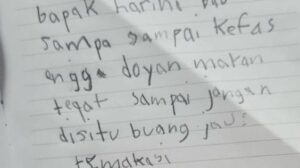 bapak harini
sampa sampai kefas
angga doyan makan
tegat sampai jangan
disitu buang
temakasi